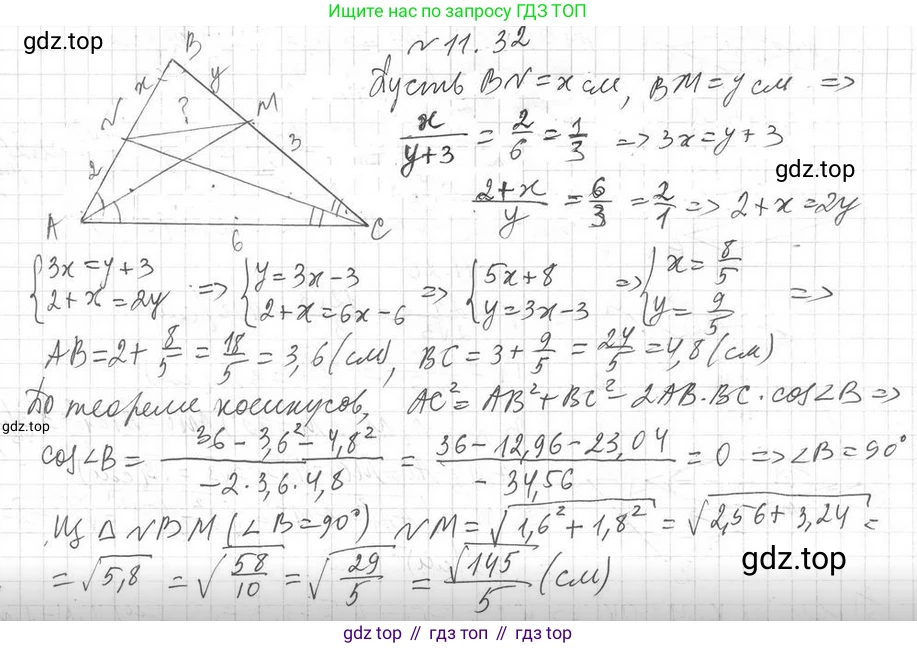 Ищите нас по запросу ГДЗ ТОП
gdz.top
N 11.32
B
x
y
N
?
M
2
3
A
6
C
Пусть BN = x см, BM = y см =>
x/(y+3) = 2/6 = 1/3 => 3x = y + 3
gdz.top
(2+x)/y = 6/3 = 2/1 => 2 + x = 2y
{3x = y + 3 {y = 3x - 3 {5x + 8 {x = 8/5
{2 + x = 2y => {2 + x = 6x - 6 => {y = 3x - 3 => {y = 9/5 =>
AB = 2 + 8/5 = 18/5 = 3,6 (см), BC = 3 + 9/5 = 24/5 = 4,8 (см)
По теореме косинусов, AC² = AB² + BC² - 2AB·BC·cos∠B =>
gdz.top
cos∠B = (36 - 3,6² - 4,8²)/(-2·3,6·4,8) = (36 - 12,96 - 23,04)/(-34,56) = 0 => ∠B = 90°
Из △NBM (∠B = 90°) NM = √(1,6² + 1,8²) = √(2,56 + 3,24) =
= √5,8 = √(58/10) = √(29/5) = √145/5 (см)
gdz.top
gdz.top // гдз топ // gdz top